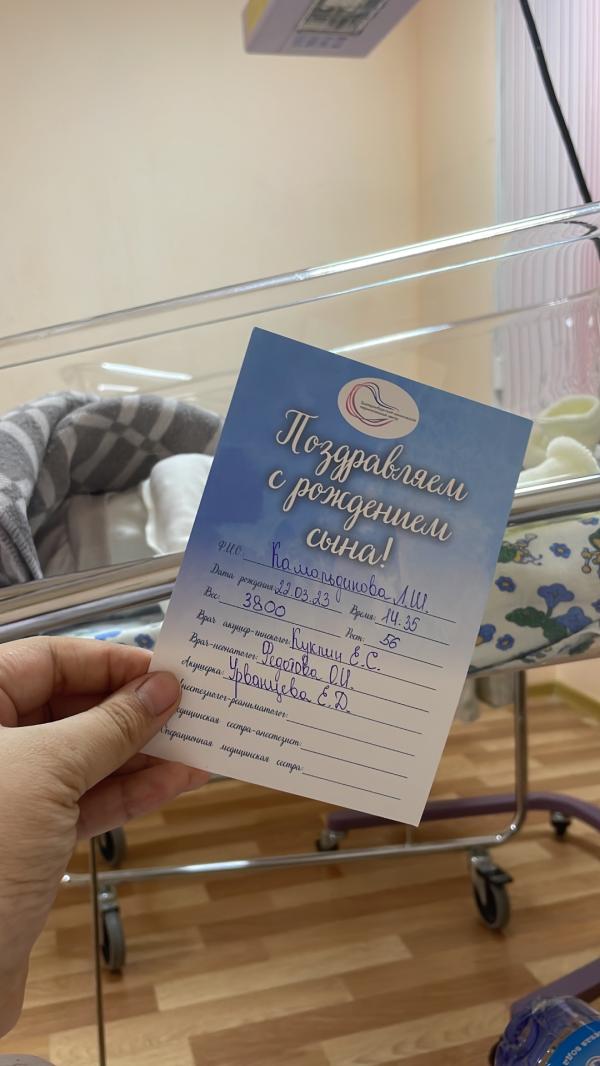 Поздравляем
с рождением
сына!
Ф.И.О. Камольдинова Л.Ш.
Дата рождения: 22.03.23 Время: 14.35
Вес: 3800 Рост: 56
Врач акушер-гинеколог: Кукшин Е.С.
Врач-неонатолог: Федотова О.И.
Акушерка: Урванцева Е.Д.
Анестезиолог-реаниматолог:
Медицинская сестра-анестезист:
Операционная медицинская сестра:
вода